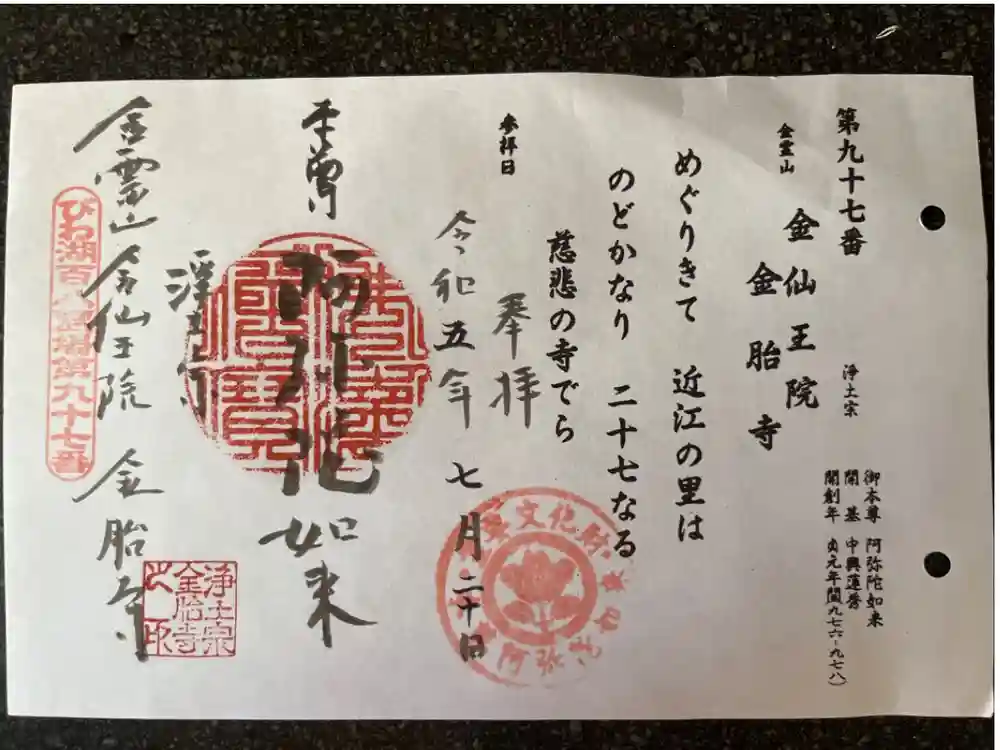 第九十七番
金霊山
金仙王院
金胎寺
浄土宗
御本尊 阿弥陀如来
開基 中興蓮秀
開創年 貞元年間九七六-九七八)
めぐりきて 近江の里は
のどかなり 二十七なる
慈悲の寺でら
参拝日
奉拝
令和五年七月二十日
文化財
阿弥陀
本尊
阿弥陀如来
浄土宗
金霊山金仙王院 金胎寺
びわ湖百八霊場第九十七番
浄土宗
金胎寺
之印